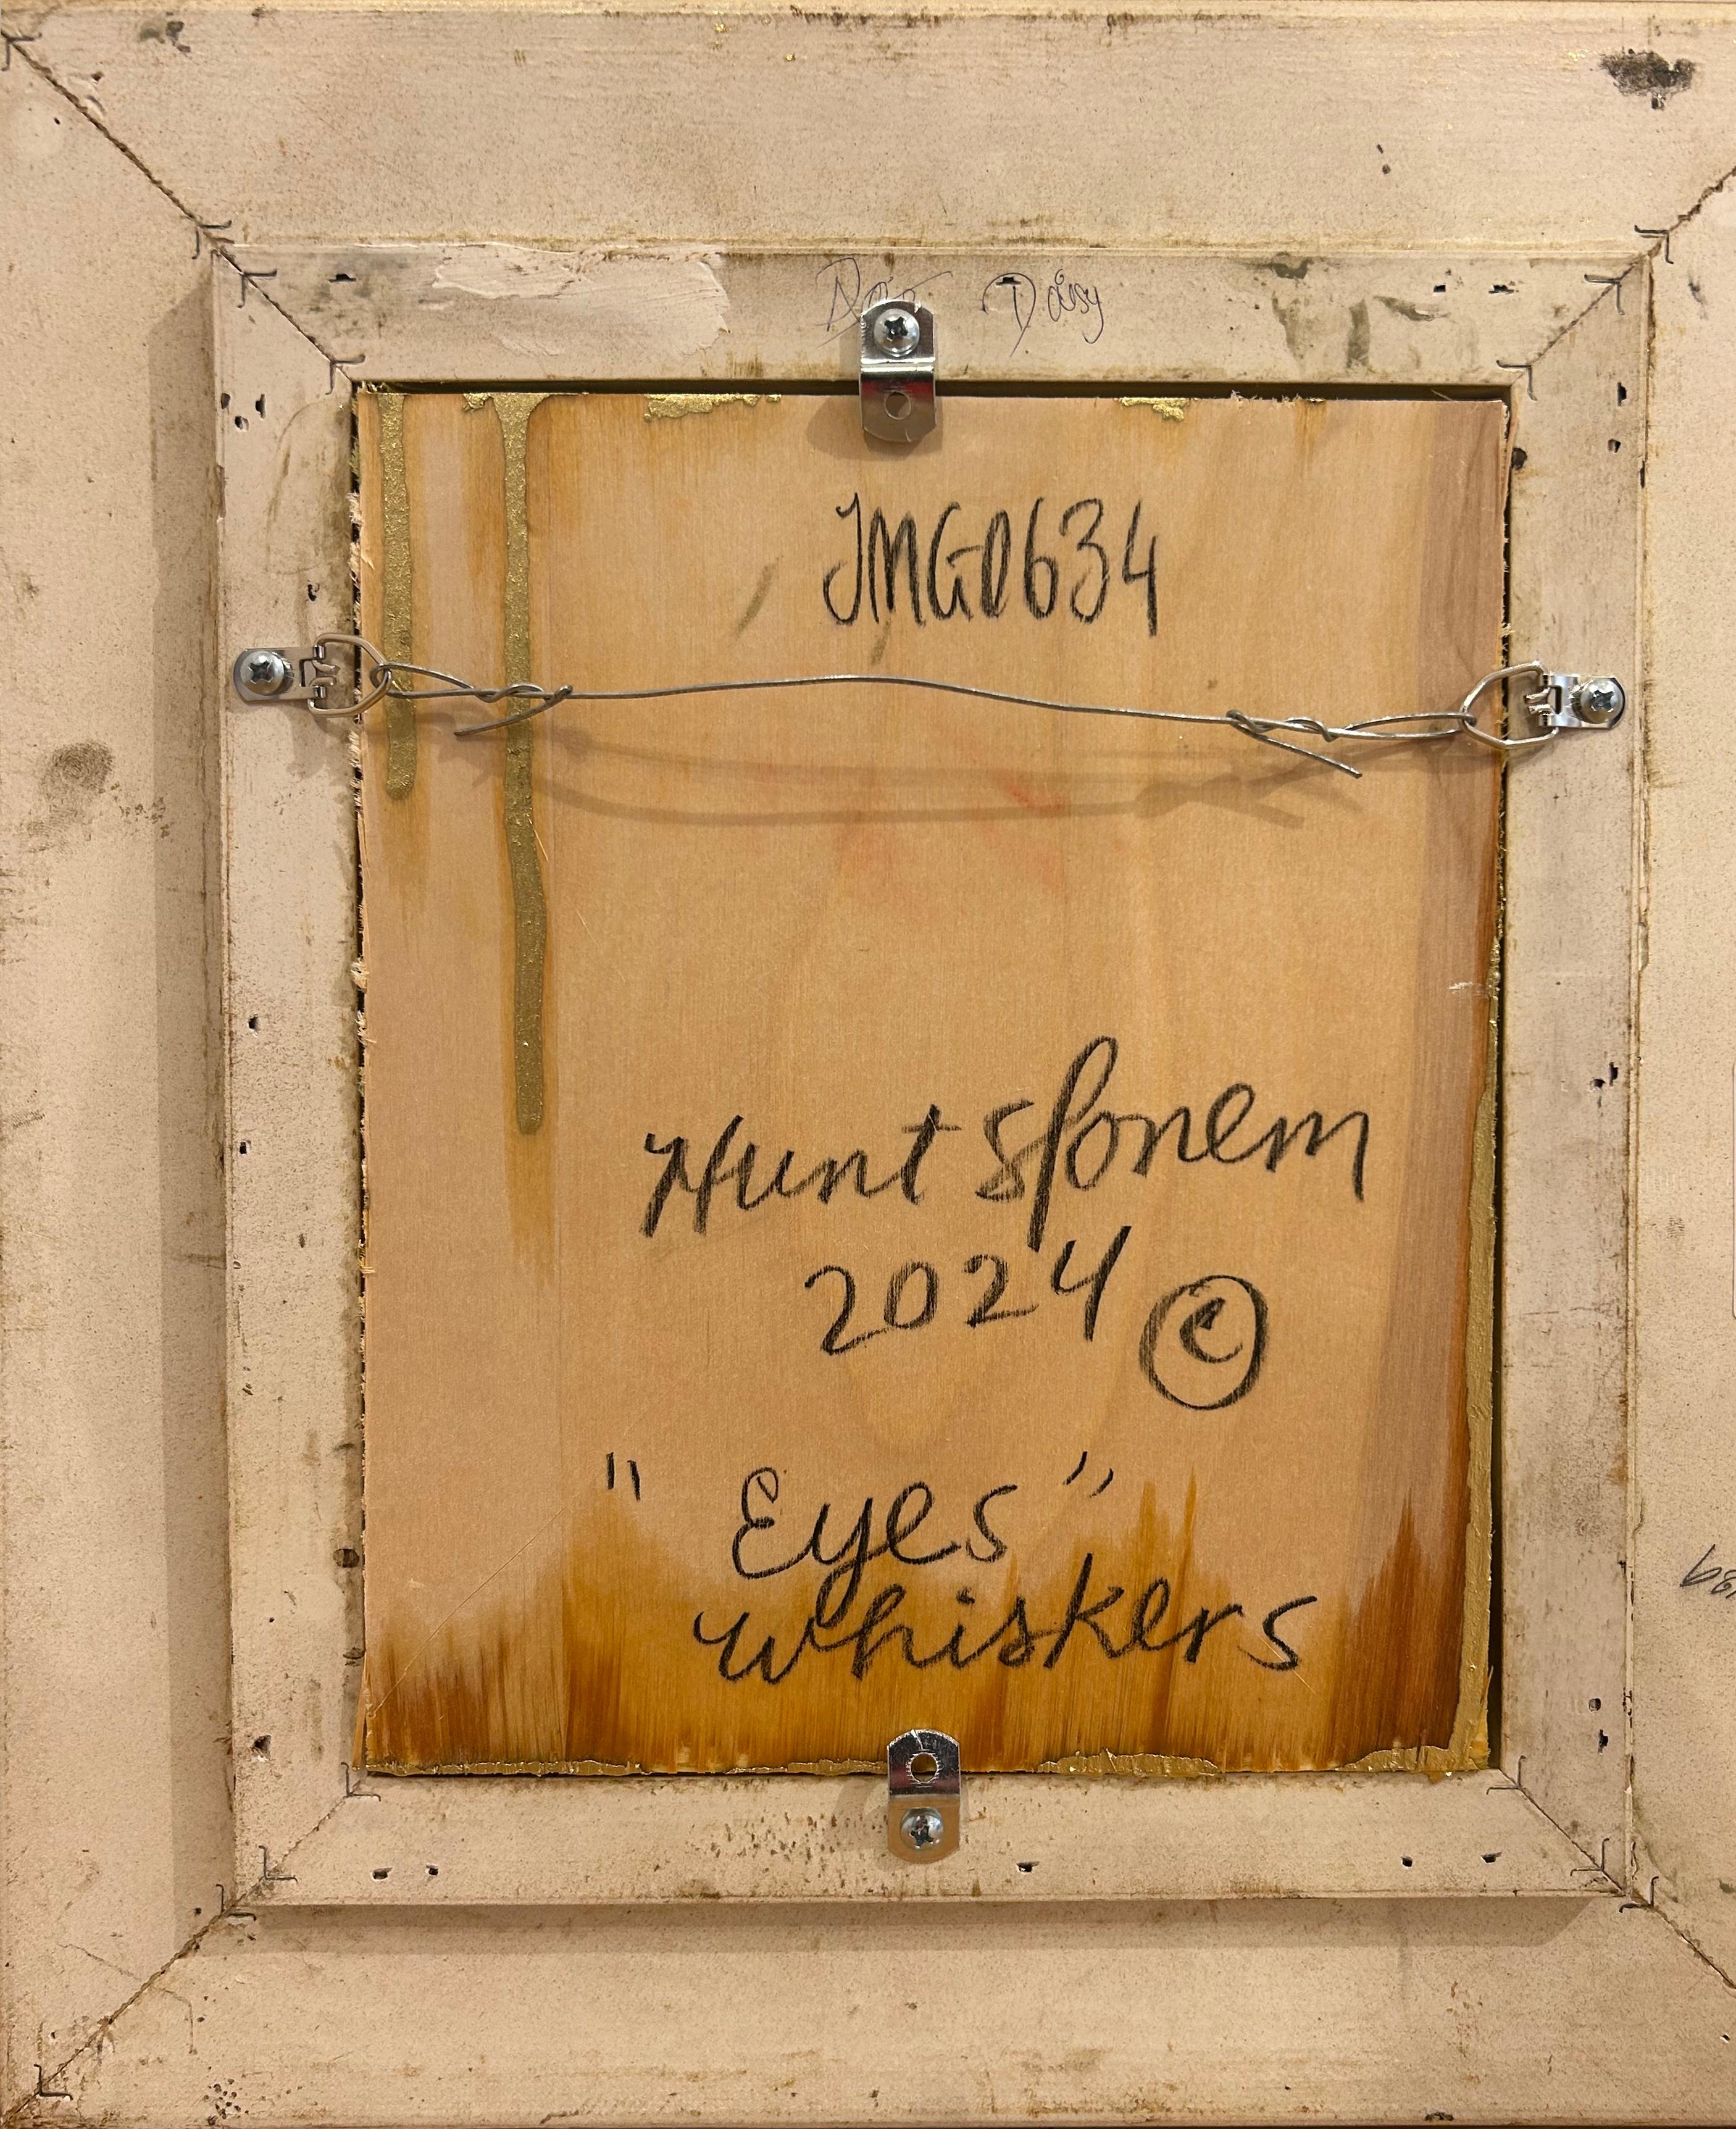 Daisy
JMG0634
Hunt Slonem
2024 ©
" Eyes "
Whiskers